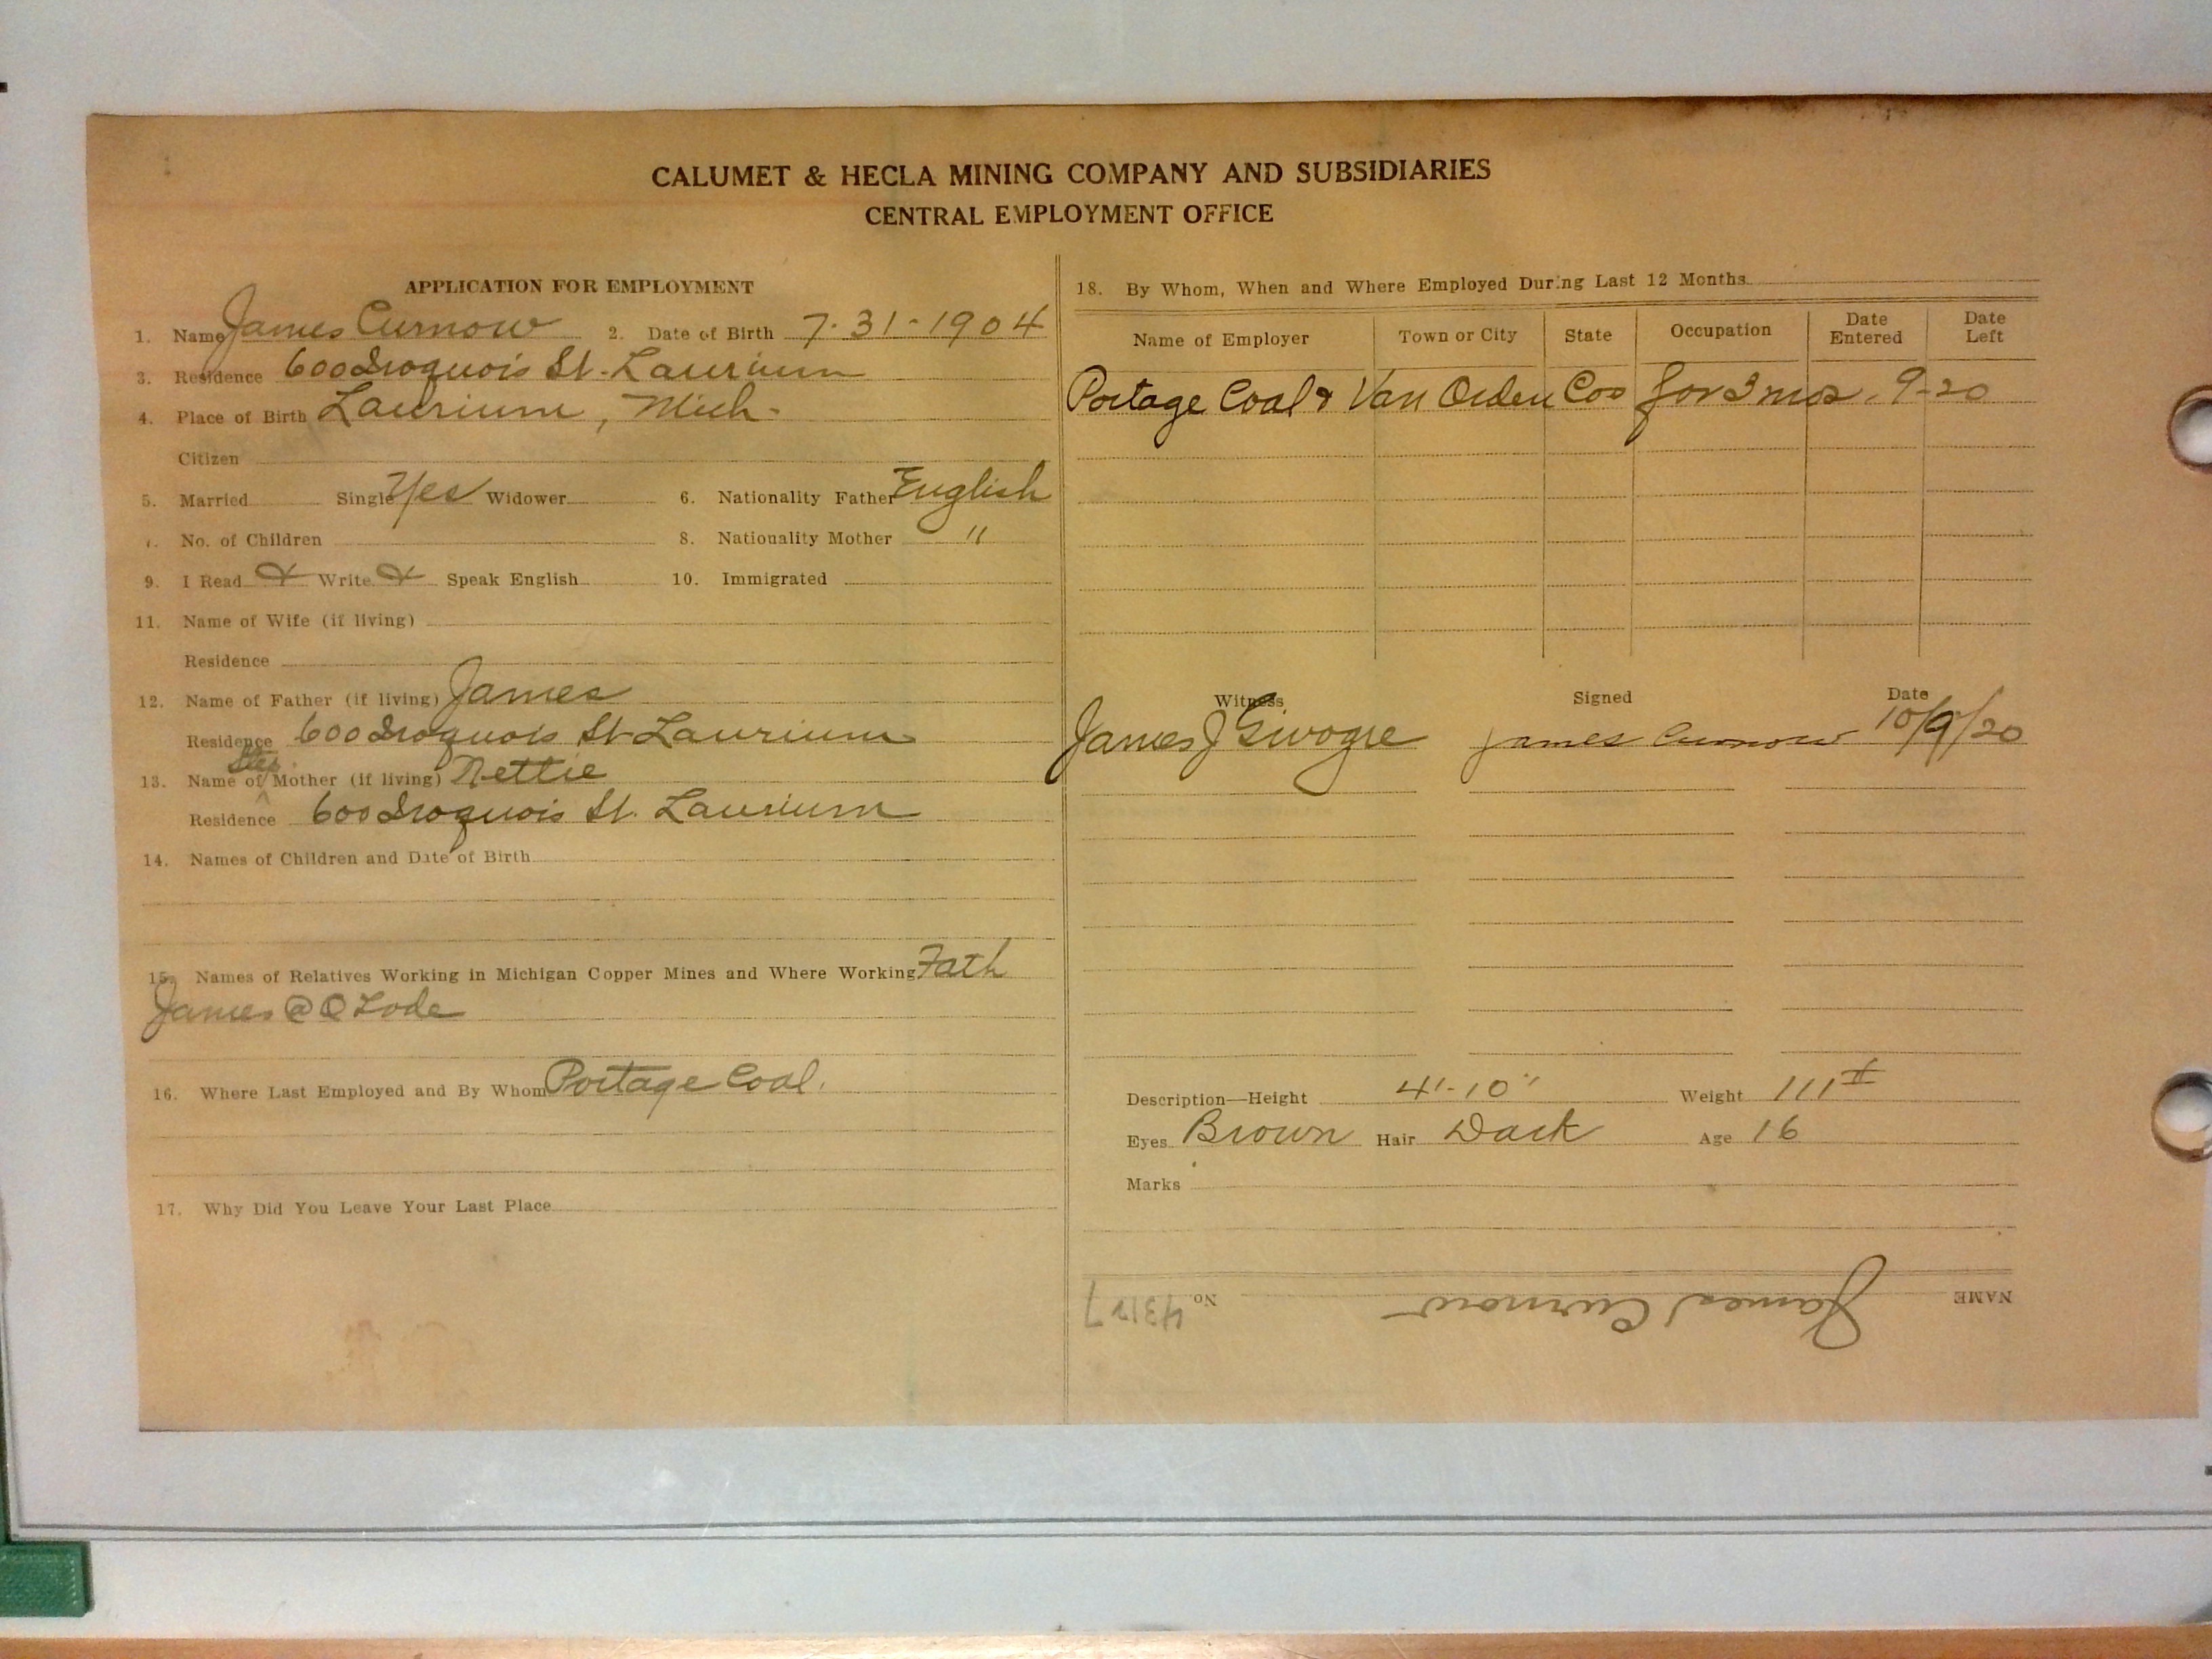 CALUMET & HECLA MINING COMPANY AND SUBSIDIARIES
CENTRAL EMPLOYMENT OFFICE
APPLICATION FOR EMPLOYMENT
1. Name James Curnow 2. Date of Birth 7-31-1904
3. Residence 600 Iroquois St. Laurium
4. Place of Birth Laurium, Mich.
Citizen
5. Married Single Yes Widower 6. Nationality Father English
7. No. of Children 8. Nationality Mother "
9. I Read Write Speak English 10. Immigrated
11. Name of Wife (if living)
Residence
12. Name of Father (if living) James
Residence 600 Iroquois St Laurium
13. Name of Step Mother (if living) Nettie
Residence 600 Iroquois St. Laurium
14. Names of Children and Date of Birth
15. Names of Relatives Working in Michigan Copper Mines and Where Working Fath
James @ O Lode
16. Where Last Employed and By Whom Portage Coal.
17. Why Did You Leave Your Last Place
18. By Whom, When and Where Employed During Last 12 Months
Name of Employer Town or City State Occupation Date Entered Date Left
Portage Coal & Van Orden Cos for 3 mos. 9-20
Witness Signed Date
James J James Curnow 10/9/20
Description—Height 4'-10" Weight 111#
Eyes Brown Hair Dark Age 16
Marks
NAME James Curnow No. 43127